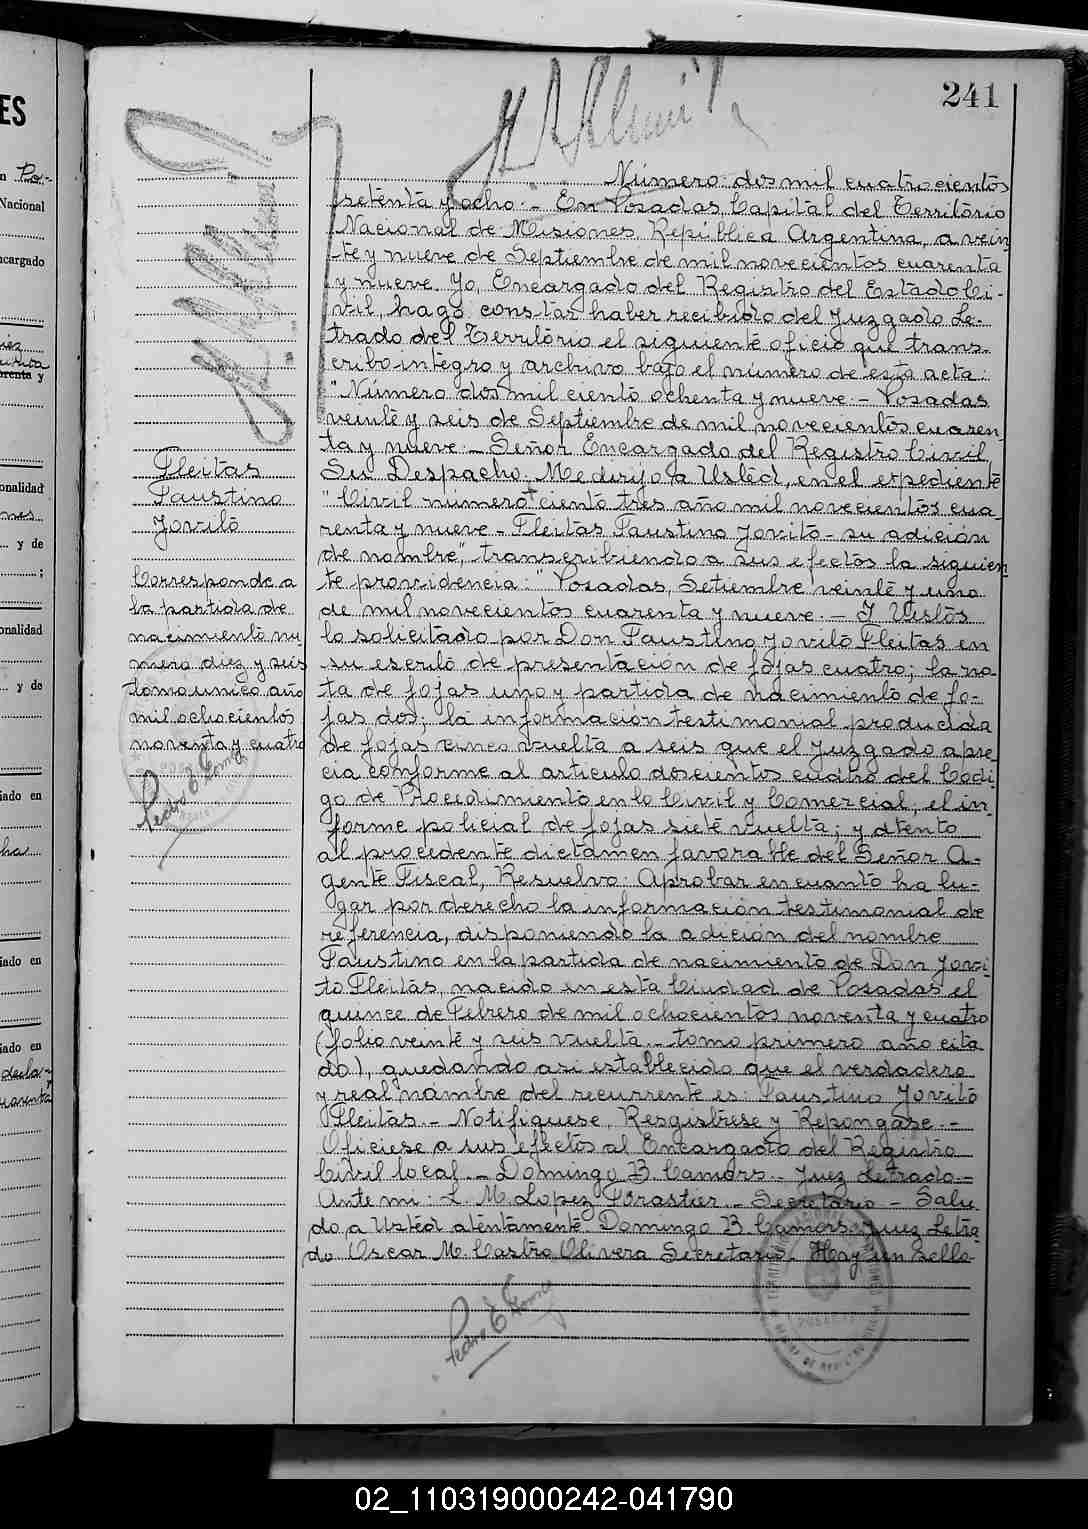 241
Número dos mil cuatrocientos
setenta y ocho.- En Posadas Capital del Territorio
Nacional de Misiones República Argentina, a vein
te y nueve de Septiembre de mil novecientos cuarenta
y nueve. Yo, Encargado del Registro del Estado Ci-
vil, hago constar haber recibido del Juzgado Le-
trado del Territorio el siguiente oficio que trans-
cribo integro y archivo bajo el número de esta acta:
"Número dos mil ciento ochenta y nueve.- Posadas
veinte y seis de Septiembre de mil novecientos cuaren-
ta y nueve.- Señor Encargado del Registro Civil
Su Despacho. Me dirijo a Usted, en el expediente
"Civil número ciento tres año mil novecientos cua-
renta y nueve - Fleitas Faustino Jovito - su adición
de nombre", transcribiendo a sus efectos la siguien-
te providencia: "Posadas, Setiembre veinte y uno
de mil novecientos cuarenta y nueve.- Y Vistos
lo solicitado por Don Faustino Jovito Fleitas en
su escrito de presentación de fojas cuatro; la no-
ta de fojas uno y partida de nacimiento de fo-
jas dos; la información testimonial producida
de fojas cinco vuelta a seis que el Juzgado apre-
cia conforme al articulo doscientos cuatro del Codi-
go de Procedimiento en lo Civil y Comercial; el in-
forme policial de fojas siete vuelta; y atento
al procedente dictamen favorable del Señor A-
gente Fiscal, Resuelvo: Aprobar en cuanto ha lu-
gar por derecho la información testimonial de
referencia, disponiendo la adición del nombre
Faustino en la partida de nacimiento de Don Jovi-
to Fleitas, nacido en esta Ciudad de Posadas el
quince de Febrero de mil ochocientos noventa y cuatro
(folio veinte y seis vuelta.- tomo primero año cita
do), quedando asi establecido que el verdadero
y real nombre del recurrente es: Faustino Jovito
Fleitas.- Notifiquese, Resgistrese y Repongase.-
Oficiese a sus efectos al Encargado del Registro
Civil local.- Domingo B. Camors.- Juez Letrado.-
Ante mi: L. M. Lopez Forastier.- Secretario - Salu-
do a Usted atentamente. Domingo B. Camors Juez Letra-
do Oscar M. Castro Olivera Secretario. Hay un sello-
Fleitas
Faustino
Jovito
Corresponde a
la partida de
nacimiento nu-
mero diez y seis
tomo unico año
mil ochocientos
noventa y cuatro
ES
Nacional
cargado
onalidad
y de
onalidad
y de
iado en
iado en
iado en
02_110319000242-041790